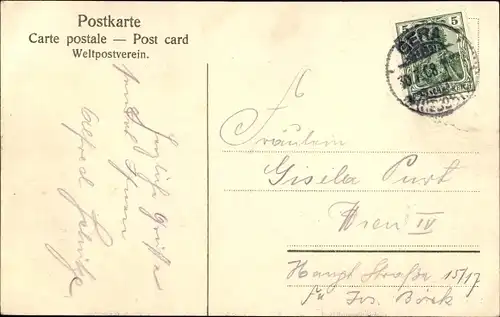 Postkarte
Carte postale — Post card
Weltpostverein.
5 5
GERA
Herzliche Grüße
sendet Ihnen
Alfred
Fräulein
Gisela Purt
Wien IV
Haupt Straße 15/17
Fa Jos. Böck